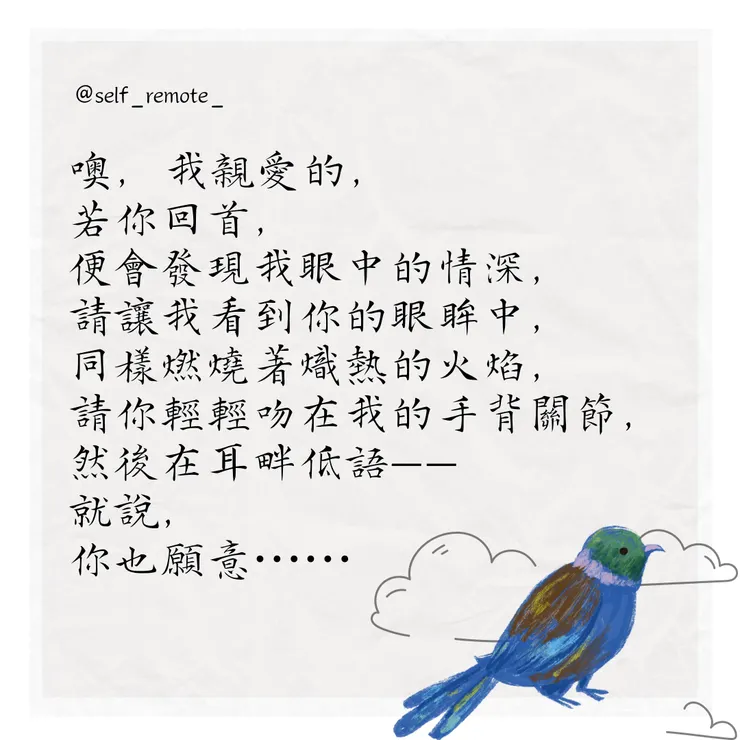 @self_remote_
噢，我親愛的，
若你回首，
便會發現我眼中的情深，
請讓我看到你的眼眸中，
同樣燃燒著熾熱的火焰，
請你輕輕吻在我的手背關節，
然後在耳畔低語——
就說，
你也願意……